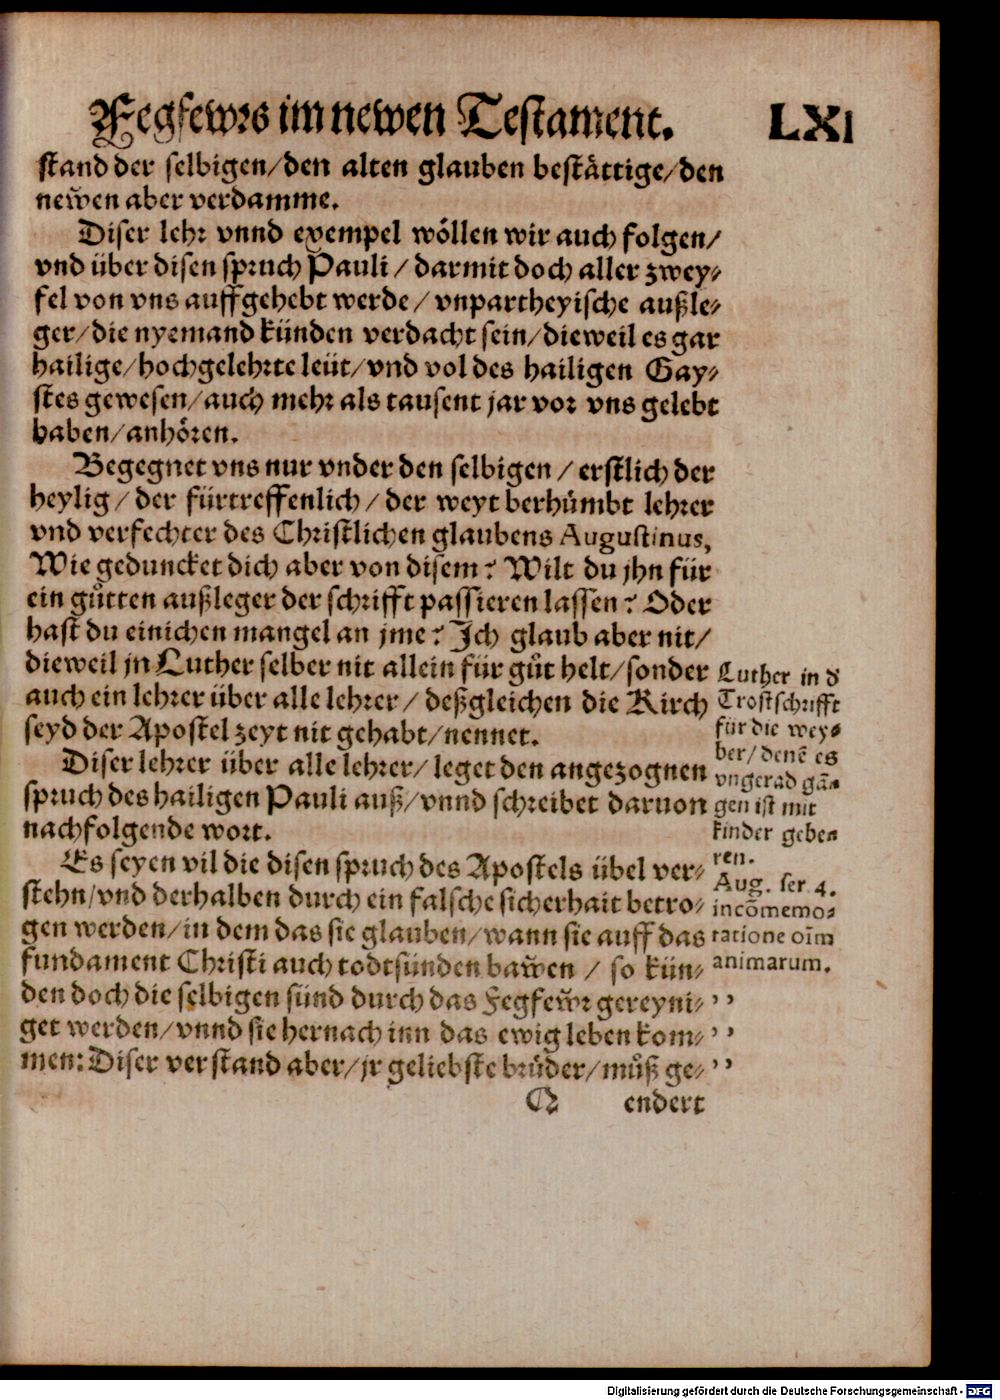 Fegfewrs im newen Testament. LXI
stand der selbigen/den alten glauben bestättige/den
new̃en aber verdamme.
Diser lehr vnnd exempel wöllen wir auch folgen/
vnd über disen spruch Pauli / darmit doch aller zwey-
fel von vns auffgehebt werde / vnpartheyische außle-
ger/die nyemand künden verdacht sein/dieweil es gar
hailige/hochgelehrte leüt/vnd vol des hailigen Gay-
stes gewesen/auch mehr als tausent jar vor vns gelebt
haben/anhören.
Begegnet vns nur vnder den selbigen / erstlich der
heylig / der fürtreffenlich / der weyt berhümbt lehrer
vnd verfechter des Christlichen glaubens Augustinus,
Wie geduncket dich aber von disem? Wilt du jhn für
ein gůtten außleger der schrifft passieren lassen? Oder
hast du einichen mangel an jme? Ich glaub aber nit/
dieweil jn Luther selber nit allein für gůt helt/sonder
auch ein lehrer über alle lehrer / deßgleichen die Kirch
seyd der Apostel zeyt nit gehabt/nennet.
Luther in d̕
Trostschrifft
für die wey-
ber/denē es
vngerad gā-
gen ist mit
kinder gebe-
ren.
Diser lehrer über alle lehrer/ leget den angezognen
spruch des hailigen Pauli auß/vnnd schreibet daruon
nachfolgende wort.
Es seyen vil die disen spruch des Apostels übel ver-
stehn/vnd derhalben durch ein falsche sicherhait betro-
gen werden/in dem das sie glauben/wann sie auff das
fundament Christi auch todtsünden baw̃en / so kün-
den doch die selbigen sünd durch das Fegfew̃r gereyni-
get werden/vnnd sie hernach inn das ewig leben kom-
men: Diser verstand aber/jr geliebste brüder/můß ge-
Aug. ser. 4.
in cõmemo-
ratione oīm
animarum.
,,
,,
,,
Q endert
Digitalisierung gefördert durch die Deutsche Forschungsgemeinschaft - DFG